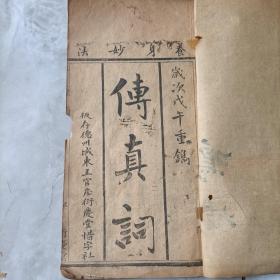 卷身妙法
歲次戊午重鐫
傳真詞
板存德州城東王官庄衍慶堂惜字社